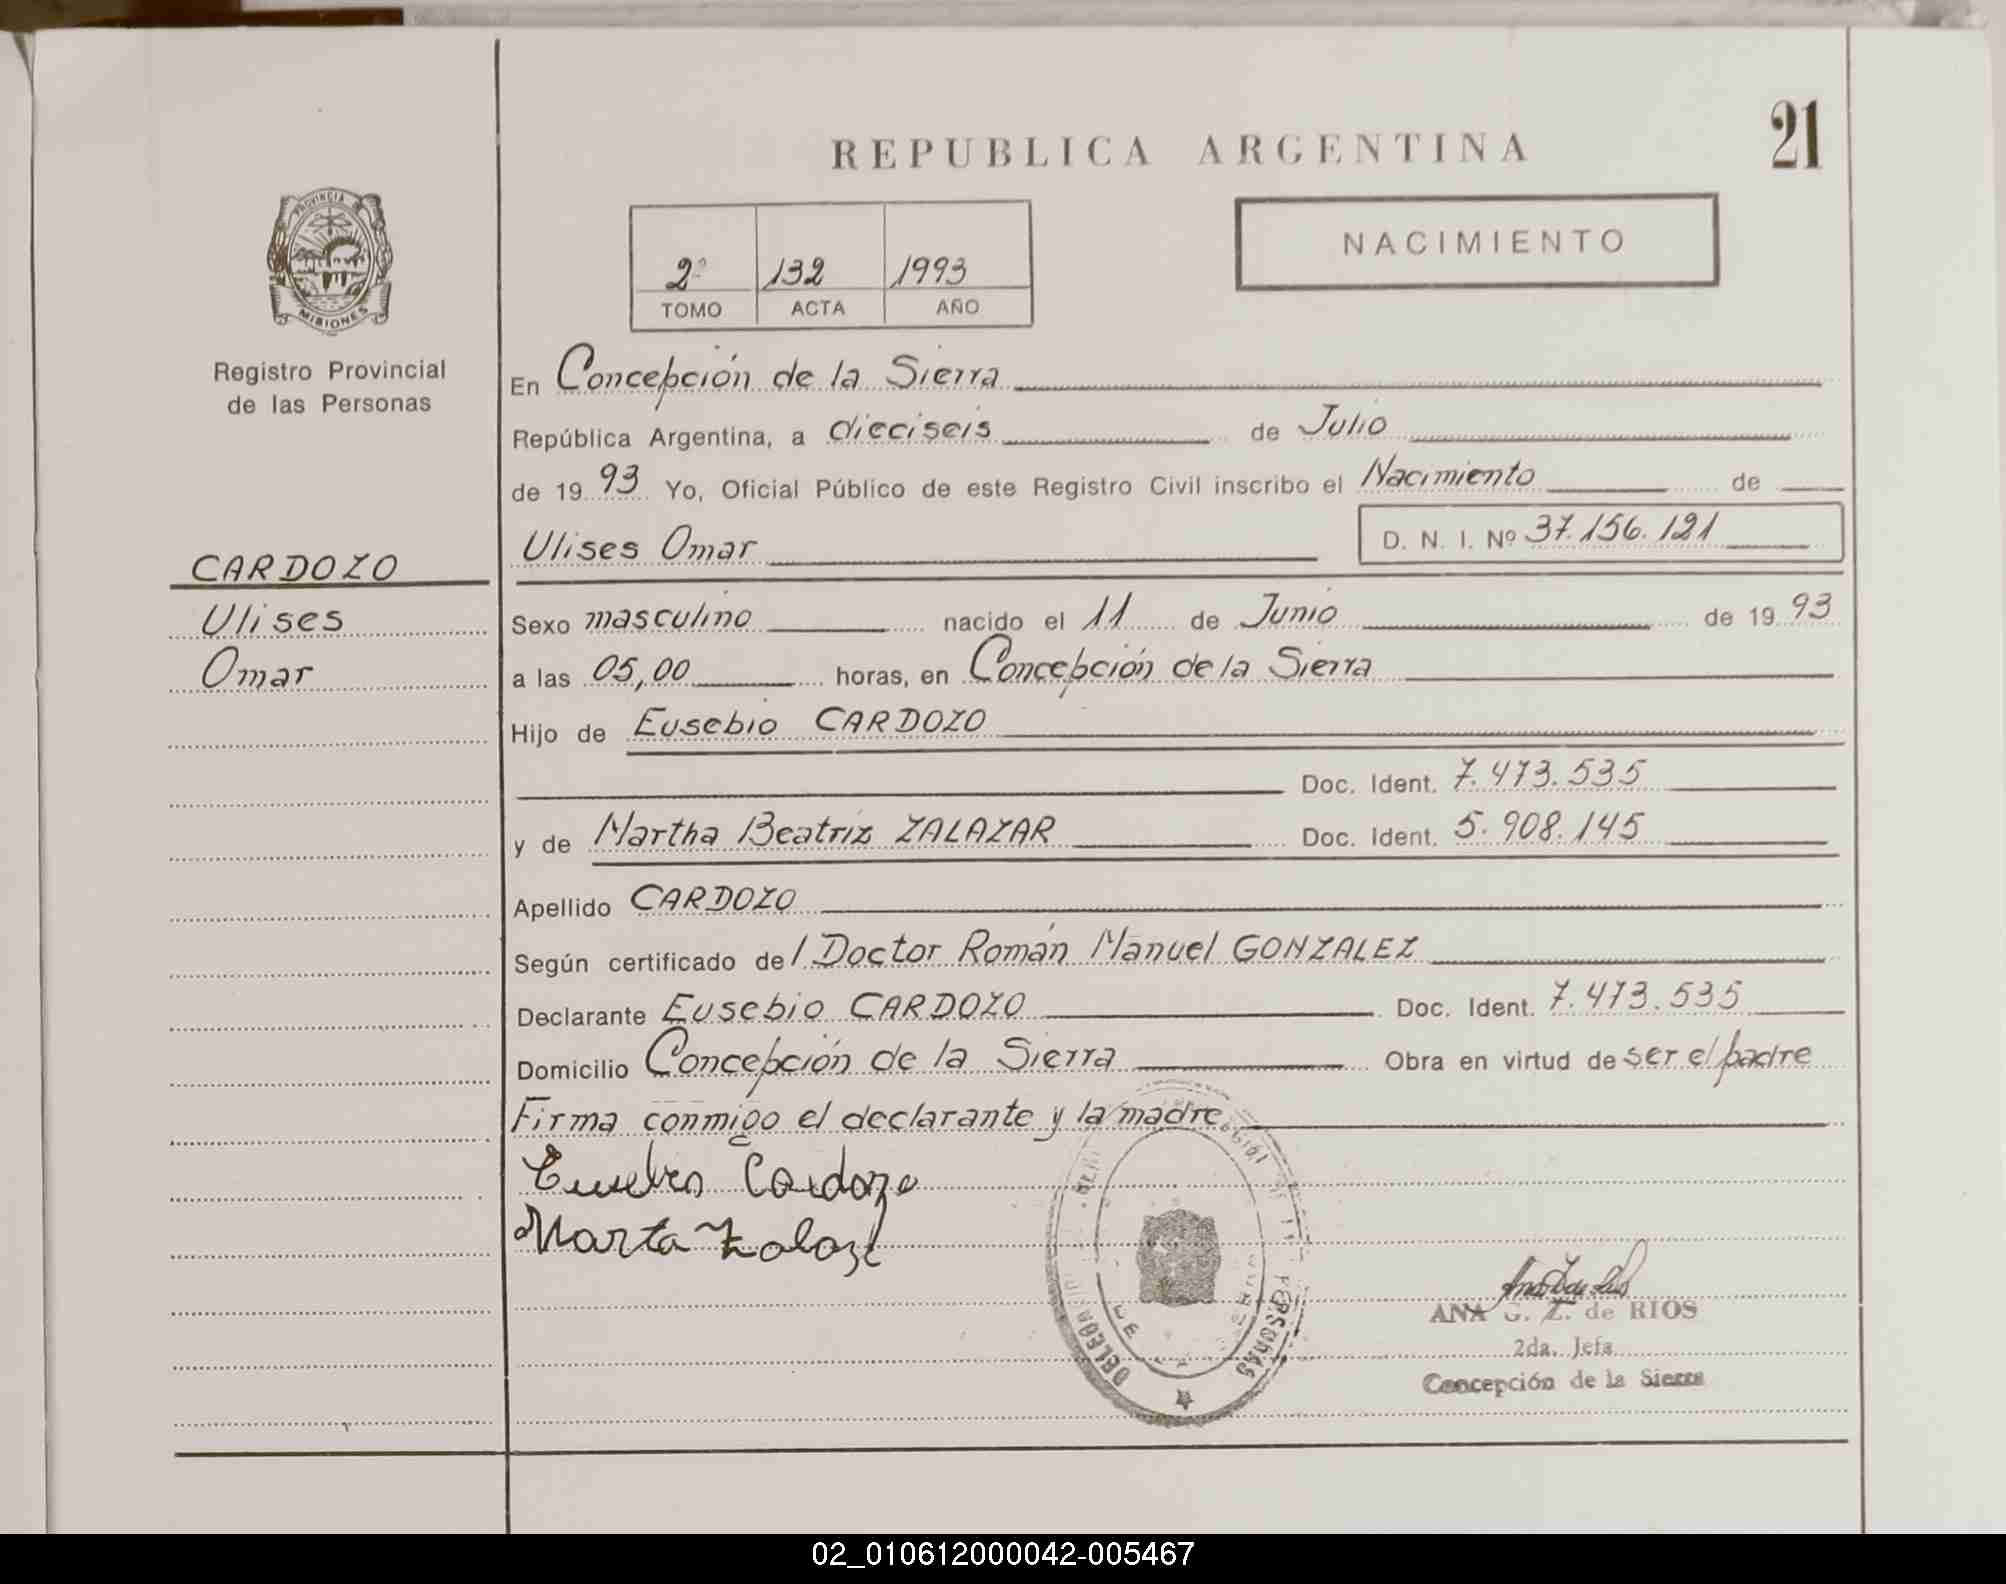 21
REPUBLICA ARGENTINA
NACIMIENTO
2º 132 1993
TOMO ACTA AÑO
PROVINCIA DE MISIONES
Registro Provincial
de las Personas
CARDOZO
Ulises
Omar
En Concepción de la Sierra
República Argentina, a dieciseis de Julio
de 19 93 Yo, Oficial Público de este Registro Civil inscribo el Nacimiento de
Ulises Omar D. N. I. Nº 37.156.121
Sexo masculino nacido el 11 de Junio de 19 93
a las 05,00 horas, en Concepción de la Sierra
Hijo de Eusebio CARDOZO
Doc. Ident. 7.473.535
y de Martha Beatriz ZALAZAR Doc. Ident. 5.908.145
Apellido CARDOZO
Según certificado de l Doctor Román Manuel GONZALEZ
Declarante Eusebio CARDOZO Doc. Ident. 7.473.535
Domicilio Concepción de la Sierra Obra en virtud de ser el padre
Firma conmigo el declarante y la madre
Eusebio Cardozo
Marta Zalaz
PERSONAS
ANA G. Z. de RIOS
2da. Jefa
Concepción de la Sierra
02_010612000042-005467